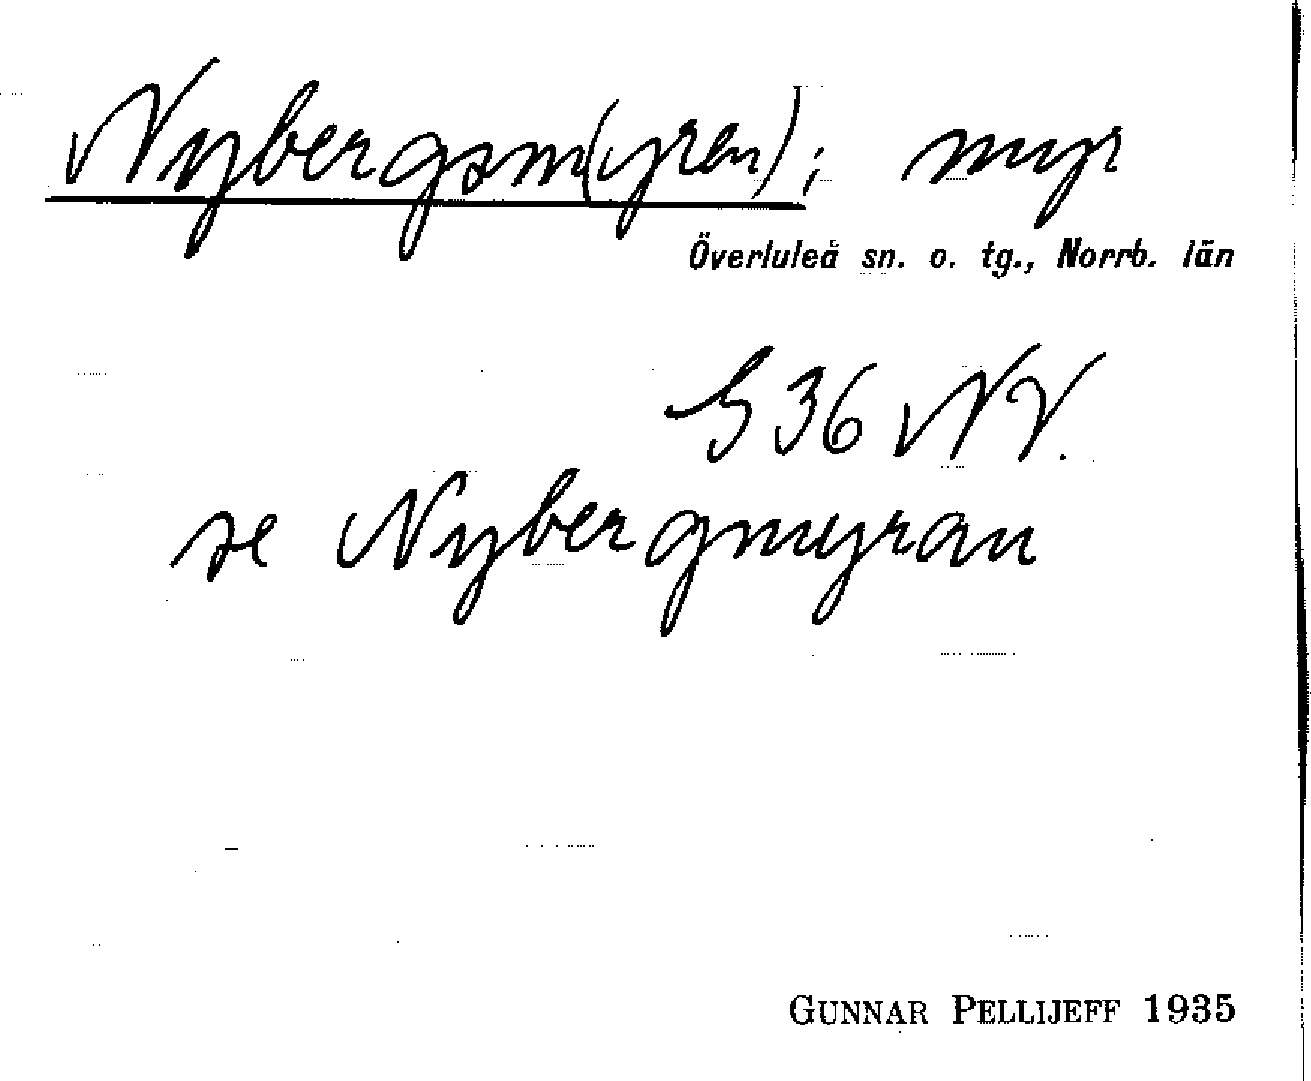 Nybergsm(yren); myr
Överluleå sn. o. tg., Norrb. län
S 36 NV.
se Nybergmyran
GUNNAR PELLIJEFF 1935